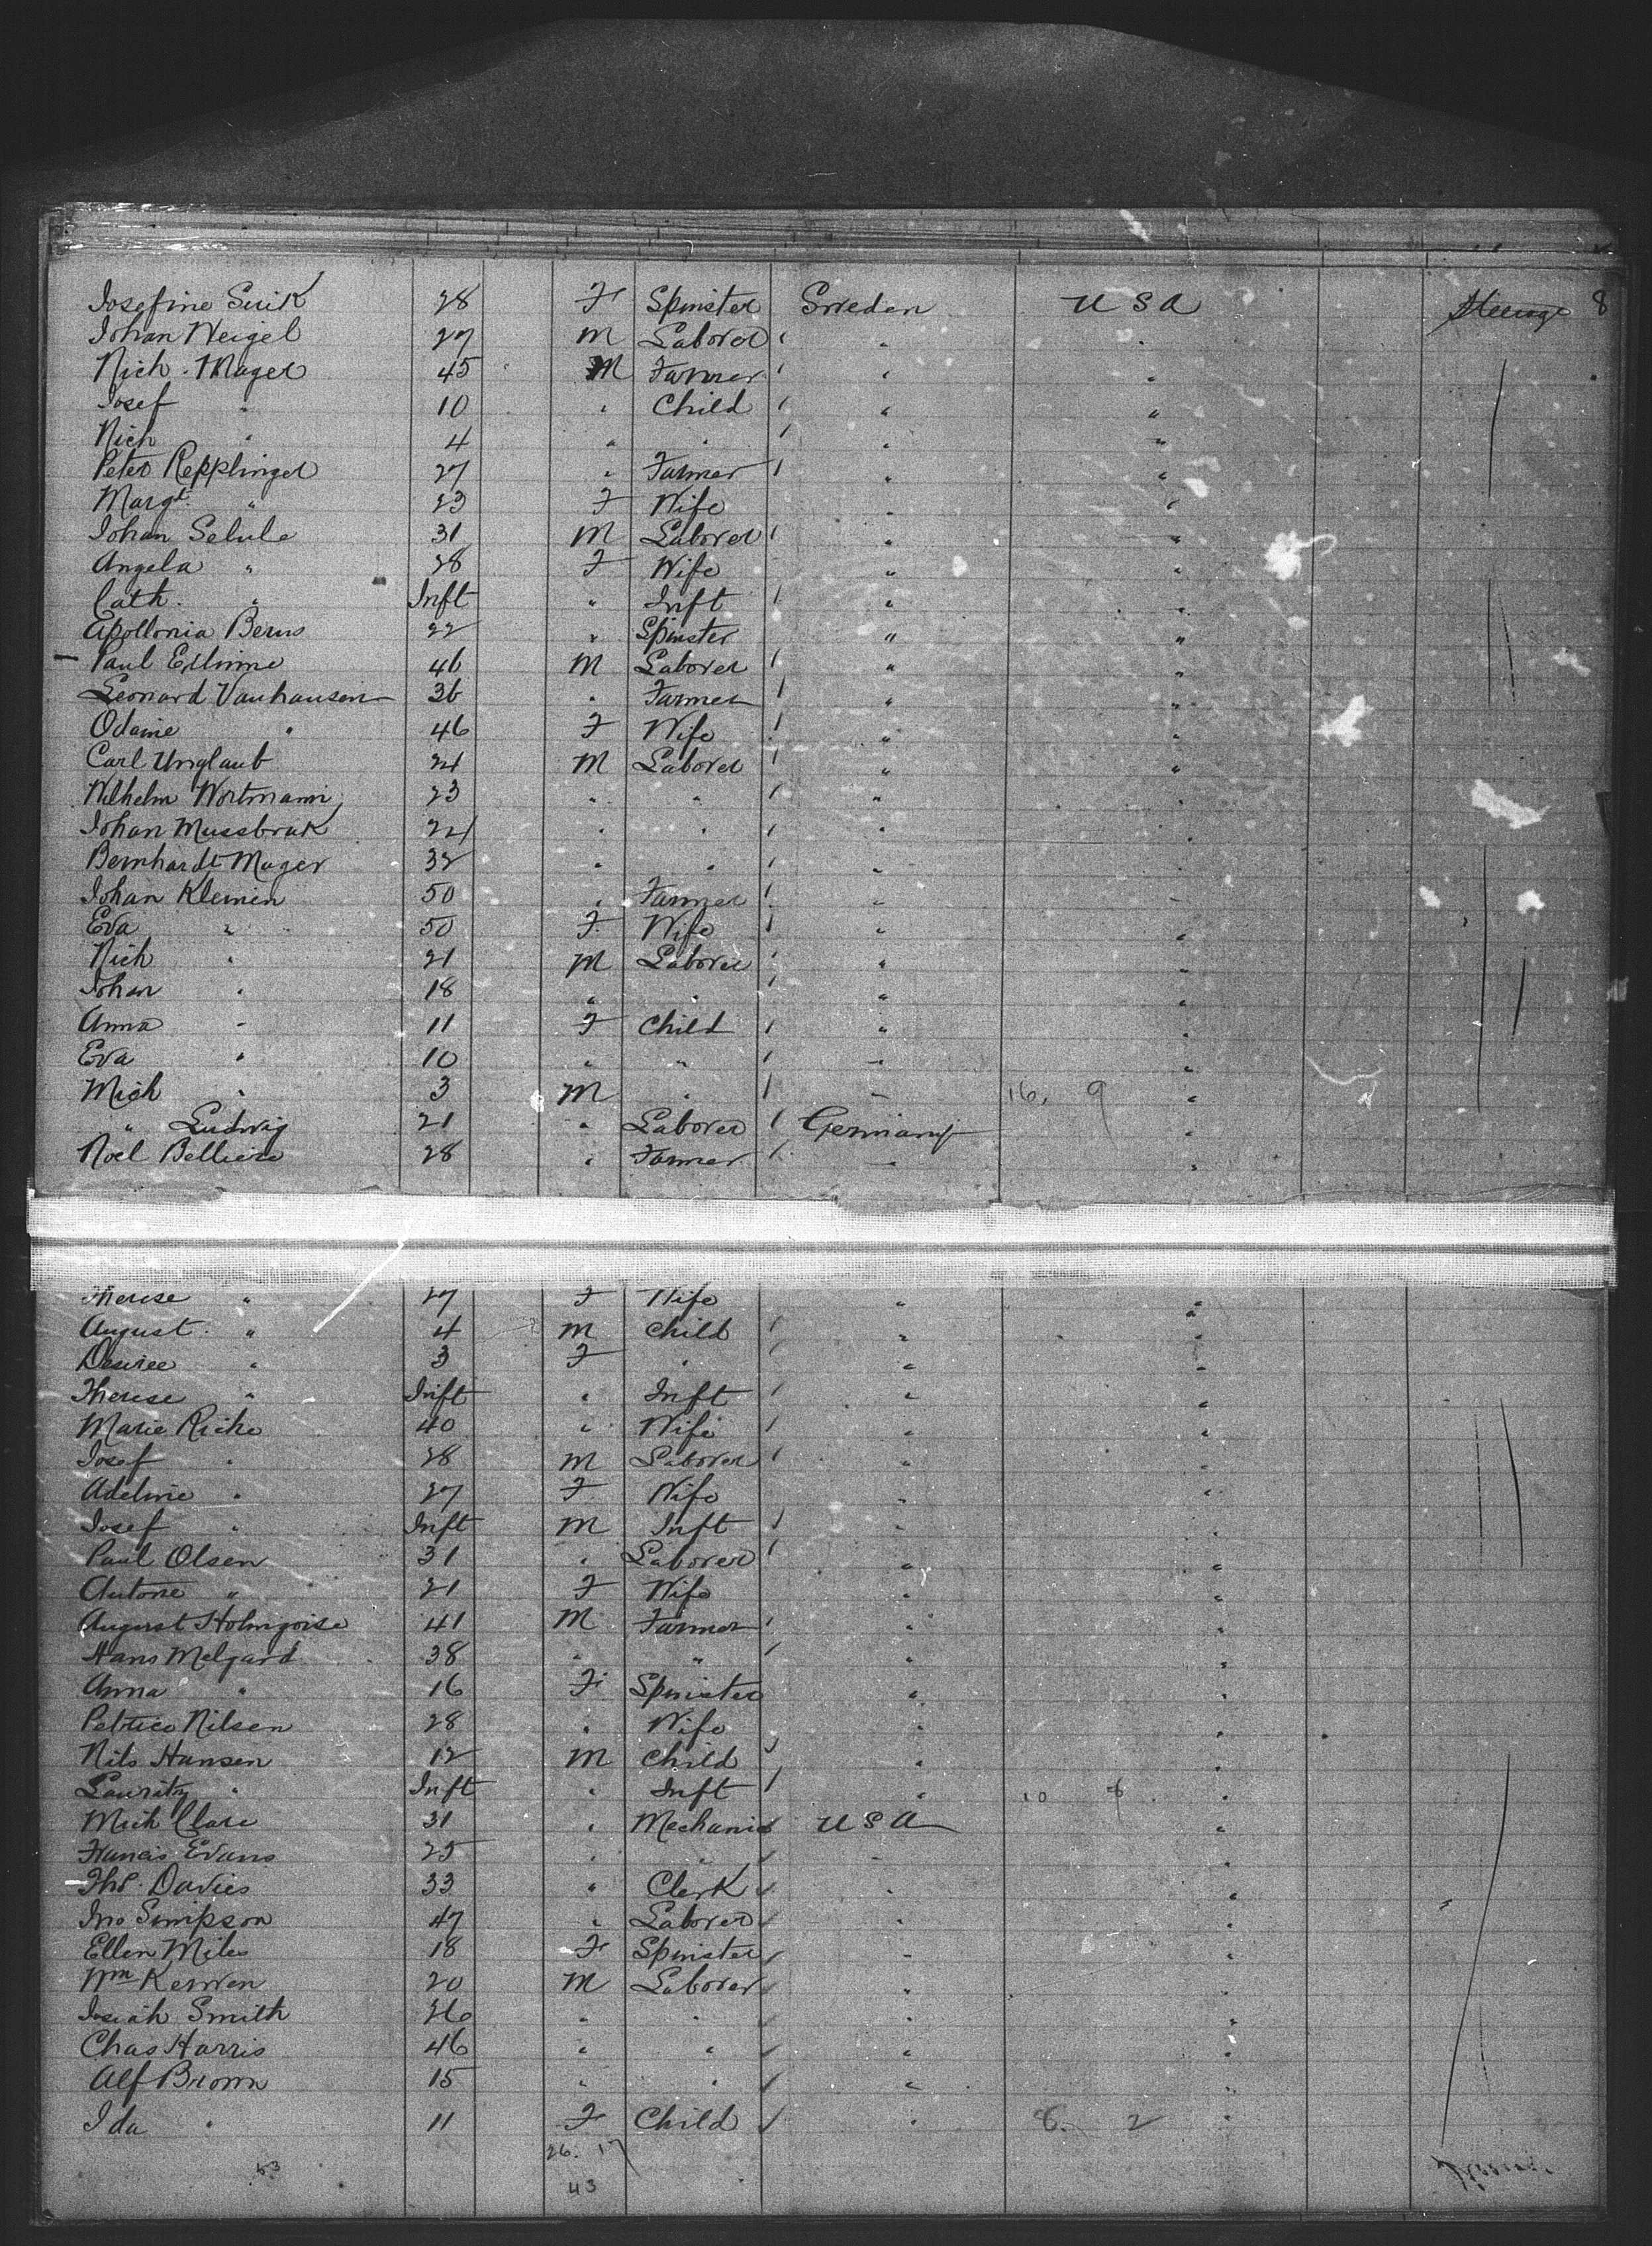 Josefine Suik 28 F Spinster Sweden USA Steerage 8
Johan Weigel 27 M Laborer " "
Nich. Mager 45 M Farmer " "
Josef " 10 " Child " "
Nich " 4 " " " "
Peter Repplinger 27 " Farmer " "
Margt. " 23 F Wife " "
Johan Selule 31 M Laborer " "
Angela " 28 F Wife " "
Cath. " Inft " Inft " "
Apollonia Berus 22 " Spinster " "
Paul 46 M Laborer " "
Leonard Vanhausen 36 " Farmer " "
Odanie " 46 F Wife " "
Carl Unglaub 24 M Laborer " "
Wilhelm Wortmann 23 " " " "
Johan Mussbruk 24 " " " "
Bernhardt Mager 32 " " " "
Johan Klemin 50 " Farmer " "
Eva " 50 F Wife " "
Nich " 21 M Laborer " "
Johan " 18 " " " "
Anna " 11 F Child " "
Eva " 10 " " " "
Mich " 3 M " " 16. 9 "
" Ludwig 21 " Laborer Germany "
Noel Belliere 28 " Farmer " "
Therese " 27 F Wife " "
August " 4 M Child " "
Desiree " 3 F " " "
Therese " Inft " Inft " "
Marie Riche 40 " Wife " "
Josef " 28 M Laborer " "
Adeline " 27 F Wife " "
Josef " Inft M Inft " "
Paul Olsen 31 " Laborer " "
Antone " 21 F Wife " "
August 41 M Farmer " "
Hans Melgard 38 " " " "
Anna " 16 F Spinster " "
Petrice Nilsen 28 " Wife " "
Nils Hansen 12 M Child " "
Lauritz " Inft " Inft " 10 "
Mich Clare 31 " Mechanic USA "
Francis Evans 25 " " " "
Thos. Davies 33 " Clerk " "
Jno Simpson 47 " Laborer " "
Ellen Miles 18 F Spinster " "
Wm Kerwen 20 M Laborer " "
Josiah Smith 26 " " " "
Chas Harris 46 " " " "
Alf Brown 15 " " " "
Ida " 11 F Child " 6. 2 "
26. 17
53 43